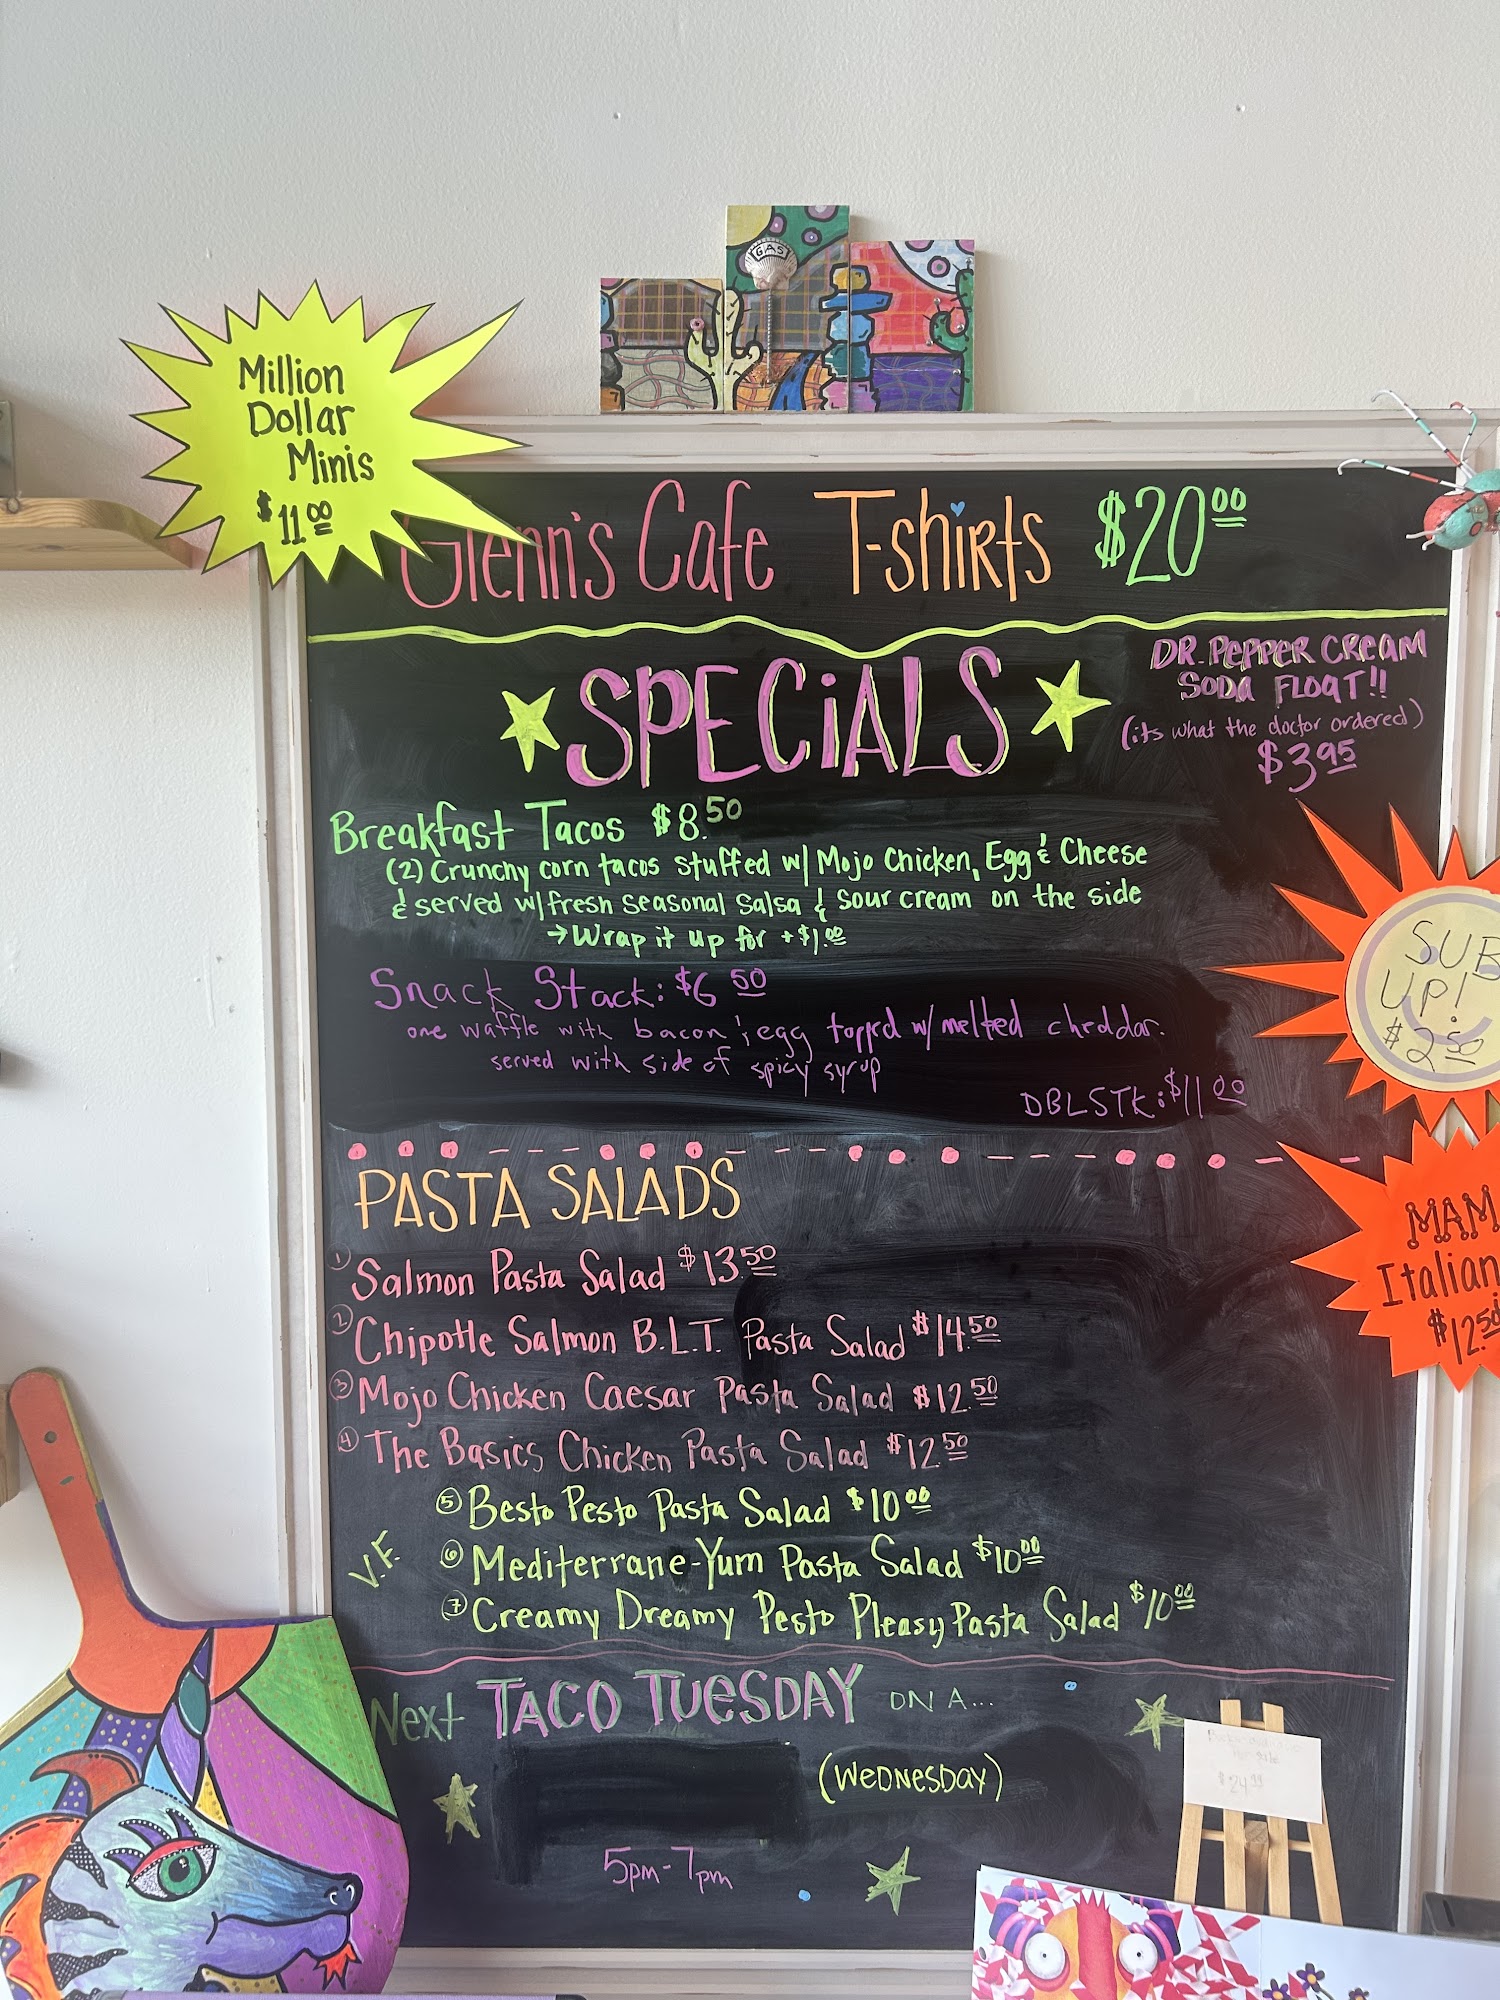 GAS
Million
Dollar
Minis
$11.00
Glenn's Cafe T-shirts $20.00
SPECiALS
DR. PEPPER CREAM
SODA FLOAT!!
(its what the doctor ordered)
$3.95
Breakfast Tacos $8.50
(2) Crunchy corn tacos stuffed w/ Mojo Chicken, Egg & Cheese
& served w/ fresh seasonal salsa & sour cream on the side
→ Wrap it up for +$1.00
SUB
UP!
$2.50
Snack Stack: $6.50
one waffle with bacon & egg topped w/ melted cheddar.
served with side of spicy syrup
DBLSTK: $11.00
MAM
Italian
$12.50
PASTA SALADS
① Salmon Pasta Salad $13.50
② Chipotle Salmon B.L.T. Pasta Salad $14.50
③ Mojo Chicken Caesar Pasta Salad $12.50
④ The Basics Chicken Pasta Salad $12.50
V.F.
⑤ Besto Pesto Pasta Salad $10.00
⑥ Mediterrane-Yum Pasta Salad $10.00
⑦ Creamy Dreamy Pesto Pleasy Pasta Salad $10.00
Next TACO TUESDAY ON A...
(WEDNESDAY)
5pm-7pm
$24.99